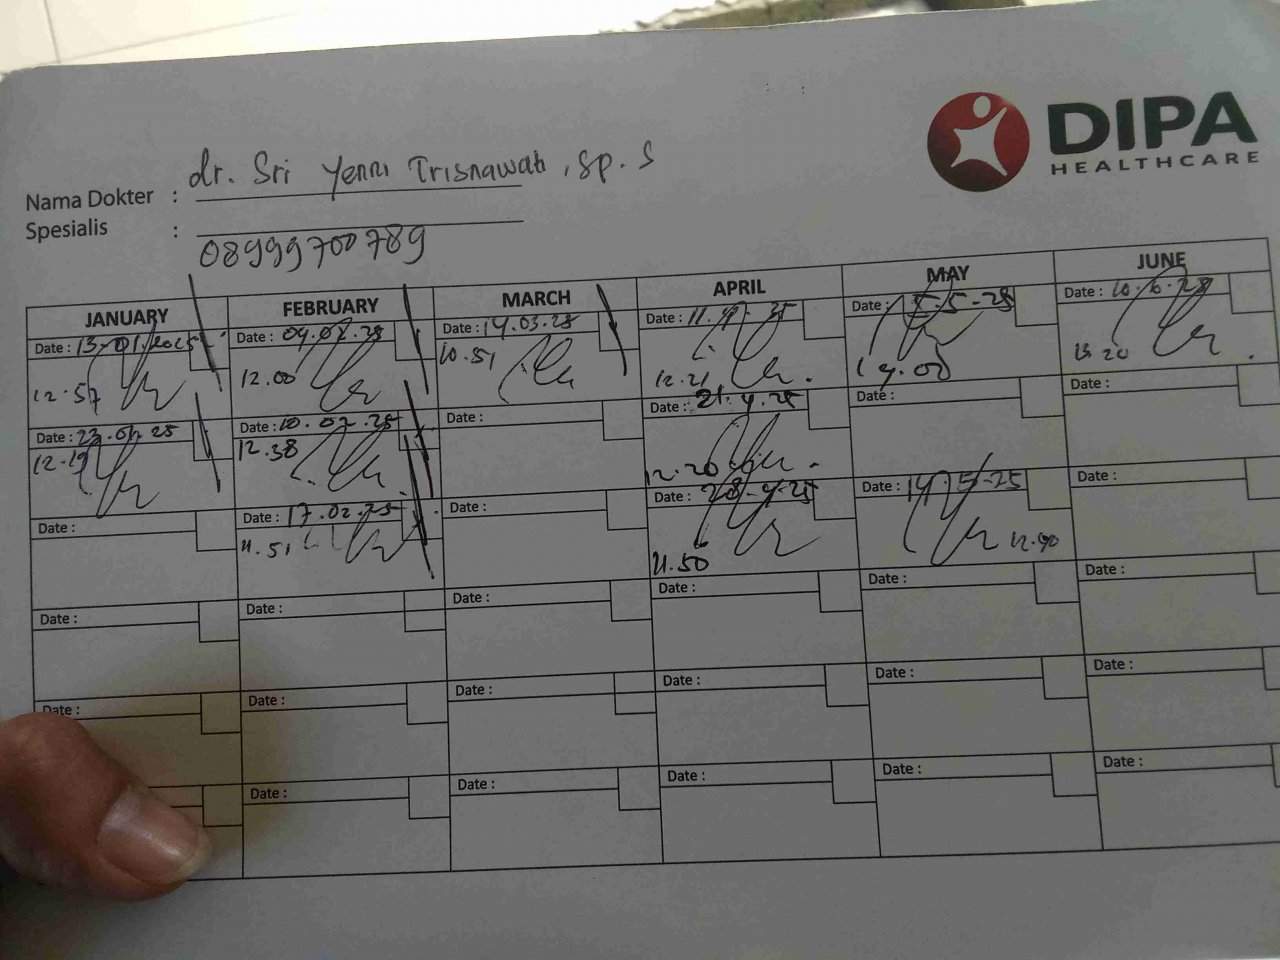 DIPA
HEALTHCARE
Nama Dokter : dr. Sri Yenni Trisnawati, Sp. S
Spesialis :
08999700789
JANUARY FEBRUARY MARCH APRIL MAY JUNE
Date : 13-01.2025 Date : 04.02.25 Date : 14.03.25 Date : 11.4.25 Date : 5-5-25 Date : 10.6.25
12.57 12.00 10.51 12.21 14.00 13.20
Date : 23.01.25 Date : 10.02.25 Date : Date : 21.4.25 Date : Date :
12.19 12.38 12.20
Date : Date : 17.02.25 Date : Date : 28-4-25 Date : 14-5-25 Date :
11.51 11.50 12.40
Date : Date : Date : Date : Date : Date :
Date : Date : Date : Date : Date : Date :
Date : Date : Date : Date : Date :